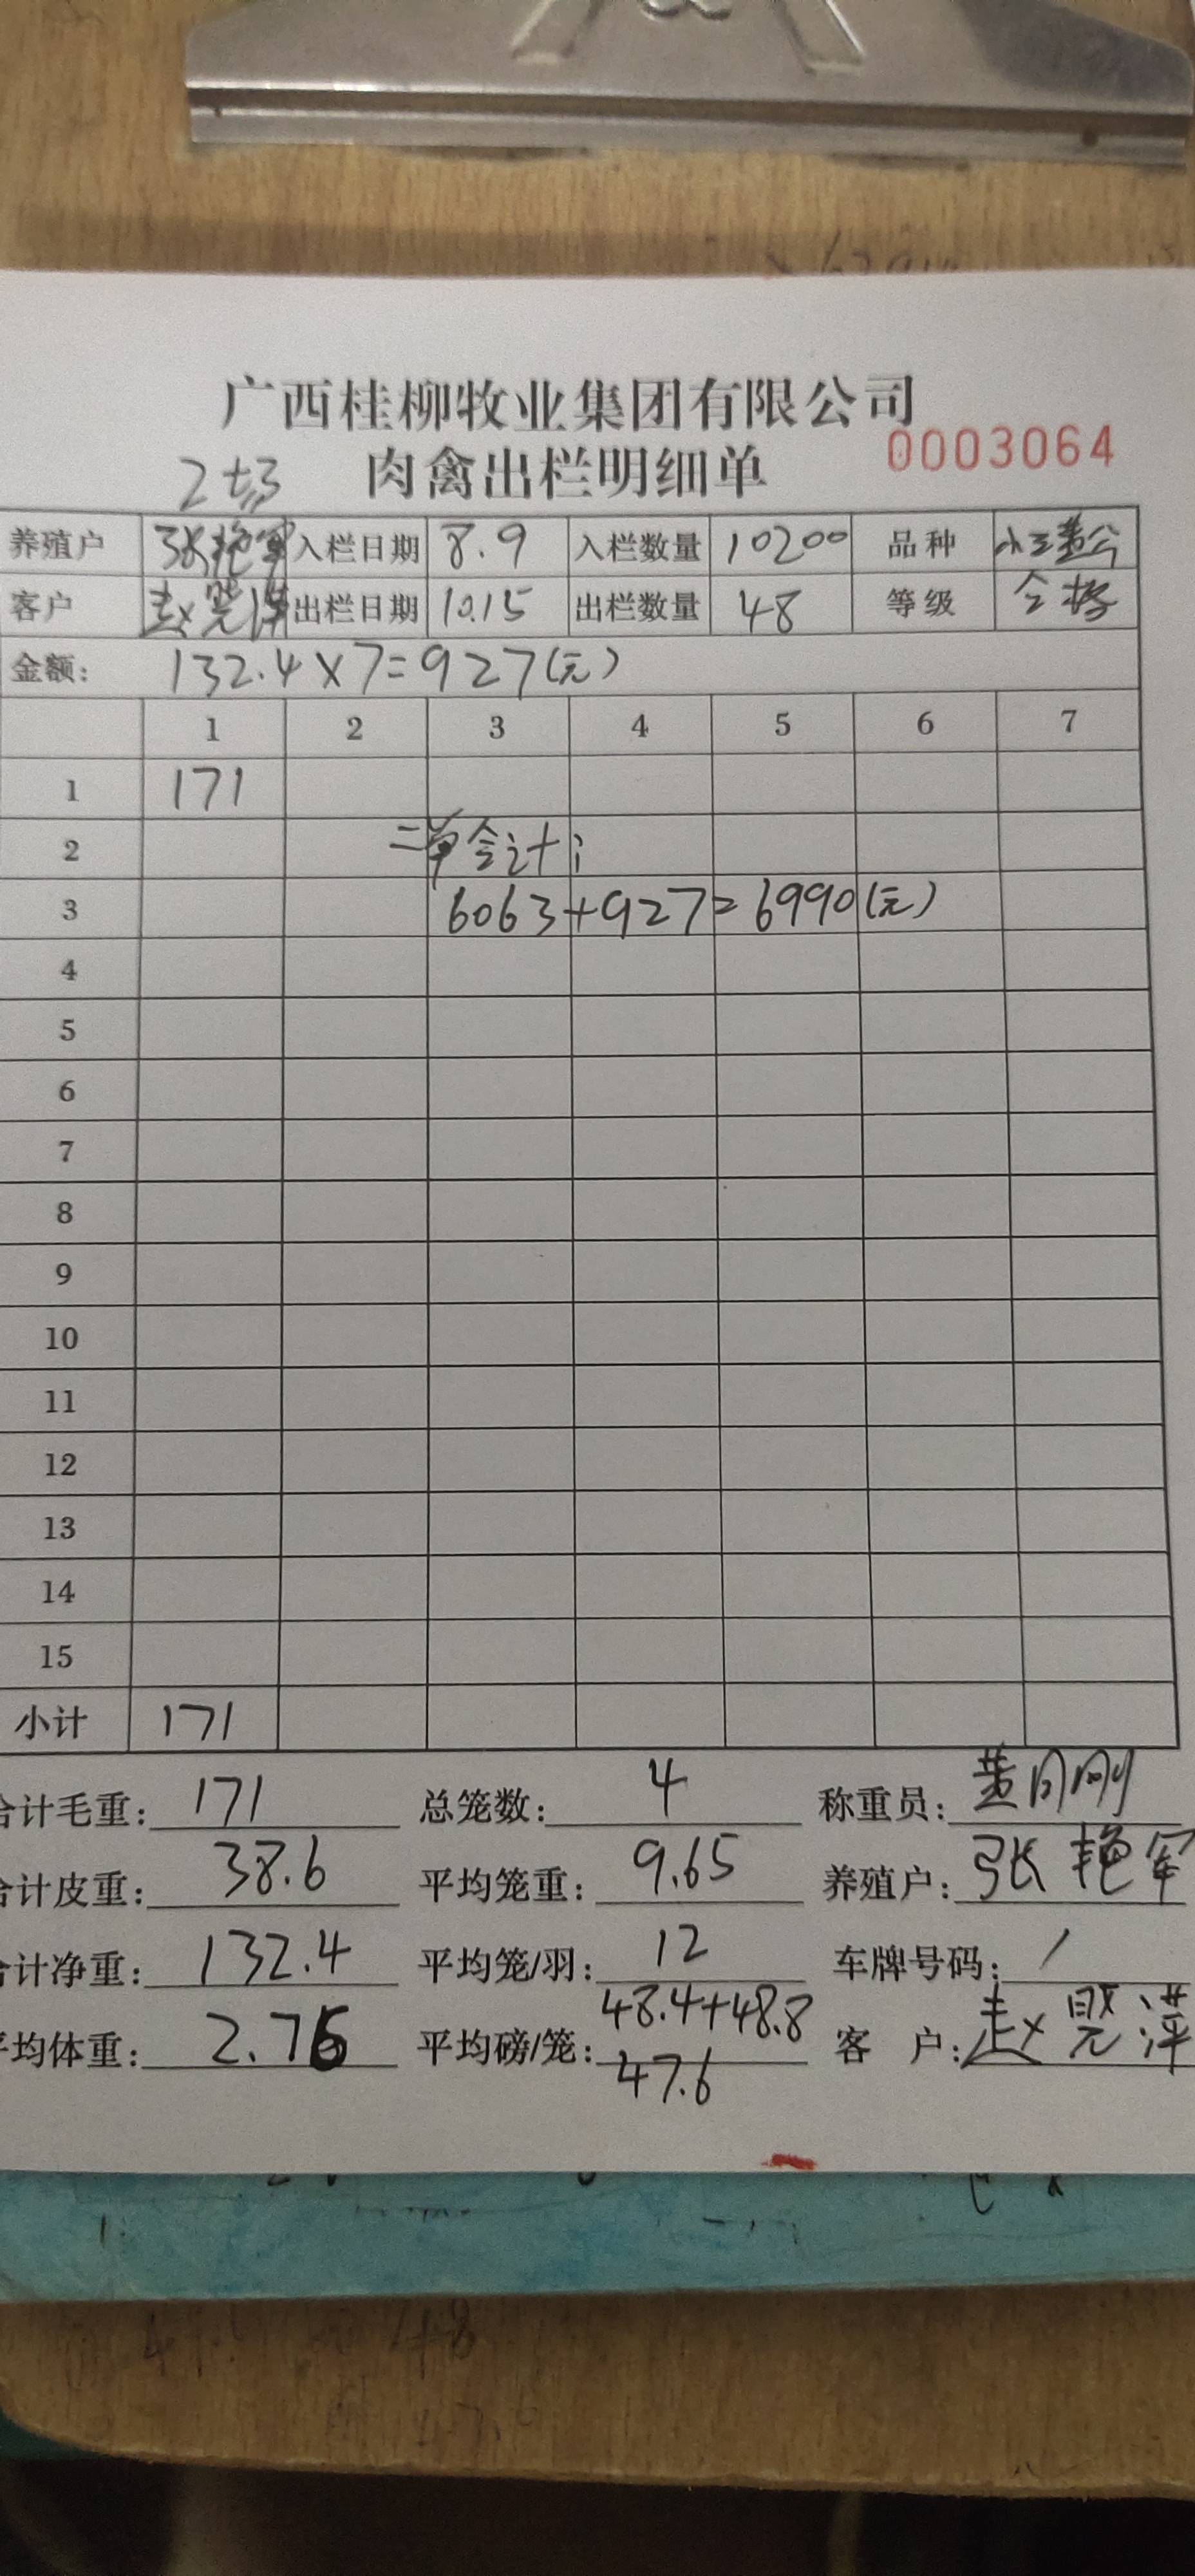 广西桂柳牧业集团有限公司
肉禽出栏明细单 0003064
养殖户 张艳军 入栏日期 8.9 入栏数量 10200 品种
客户 赵 出栏日期 10.15 出栏数量 48 等级 合格
金额: 132.4×7=927(元)
1 2 3 4 5 6 7
1 171
2 二单合计:
3 6063+927=6990(元)
4
5
6
7
8
9
10
11
12
13
14
15
小计 171
合计毛重: 171 总笼数: 4 称重员: 黄月刚
合计皮重: 38.6 平均笼重: 9.65 养殖户: 张艳军
合计净重: 132.4 平均笼/羽: 12 车牌号码: /
平均体重: 2.76 平均磅/笼: 48.4+48.8 客 户: 赵
47.6